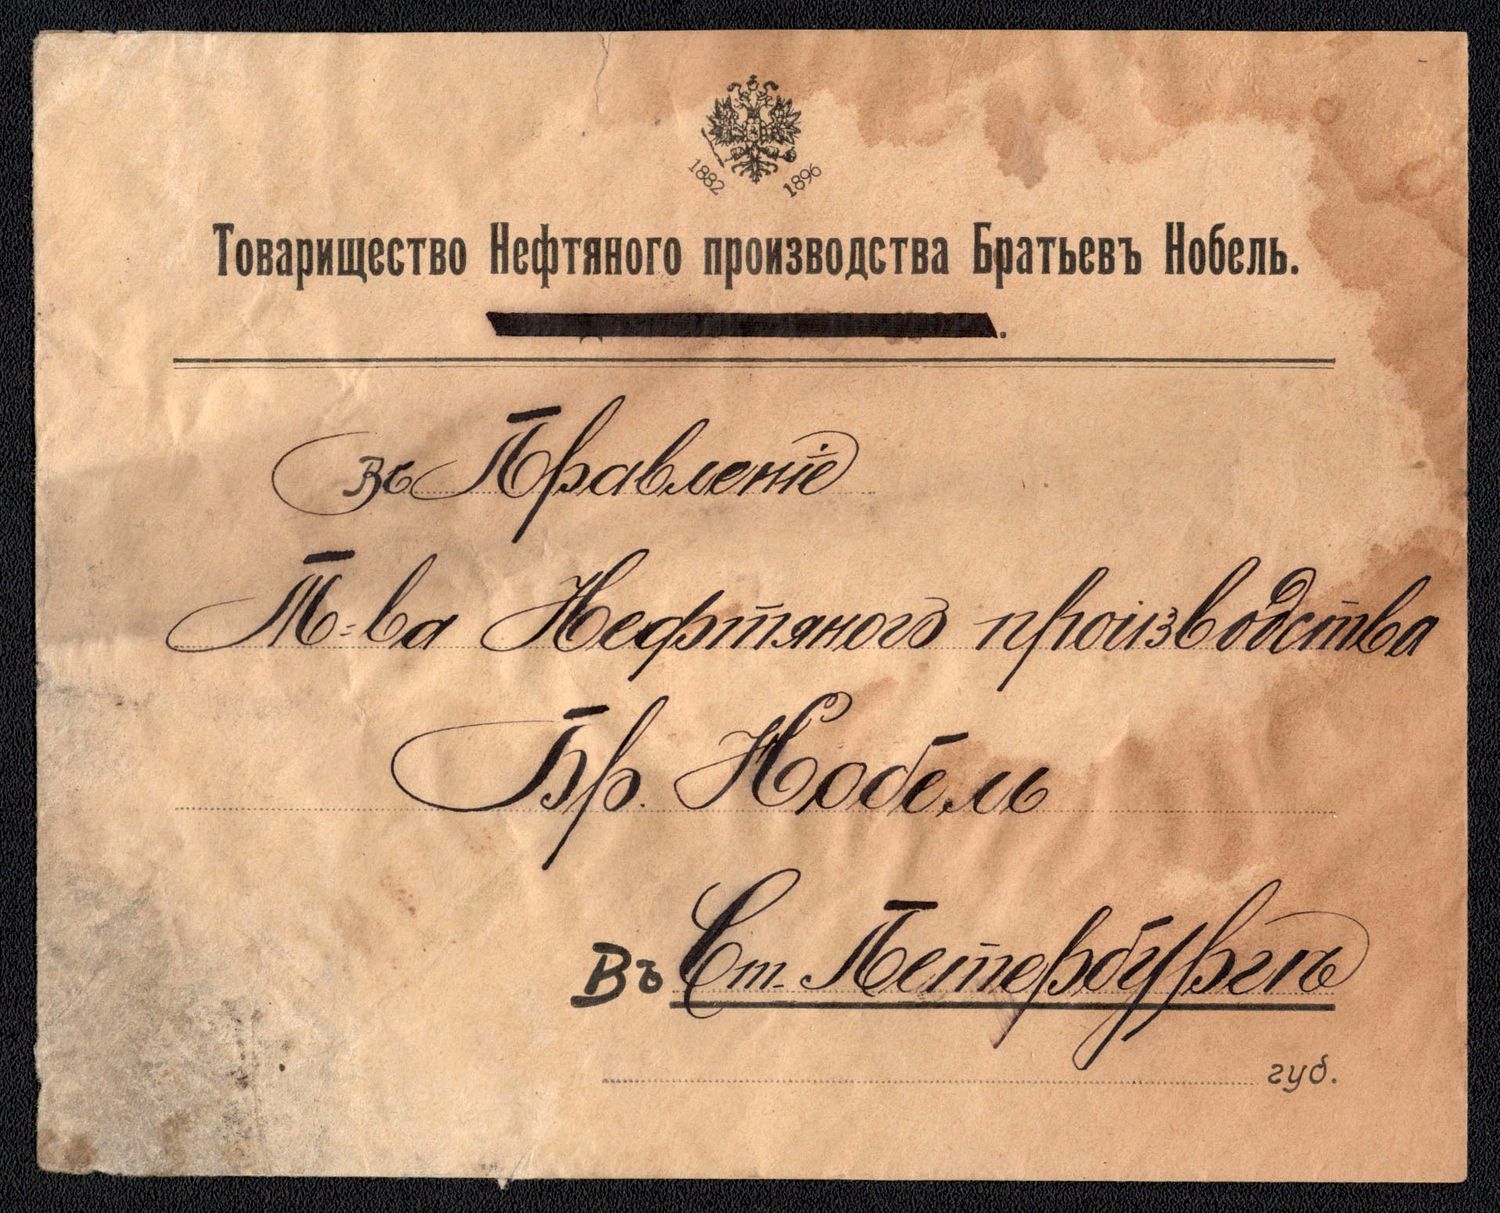 1882 1896
Товарищество Нефтяного производства Братьевъ Нобель.
въ Правленіе
Т=ва Нефтяного проізводства
Бр. Нобель
Въ Ст. Петербургъ
губ.